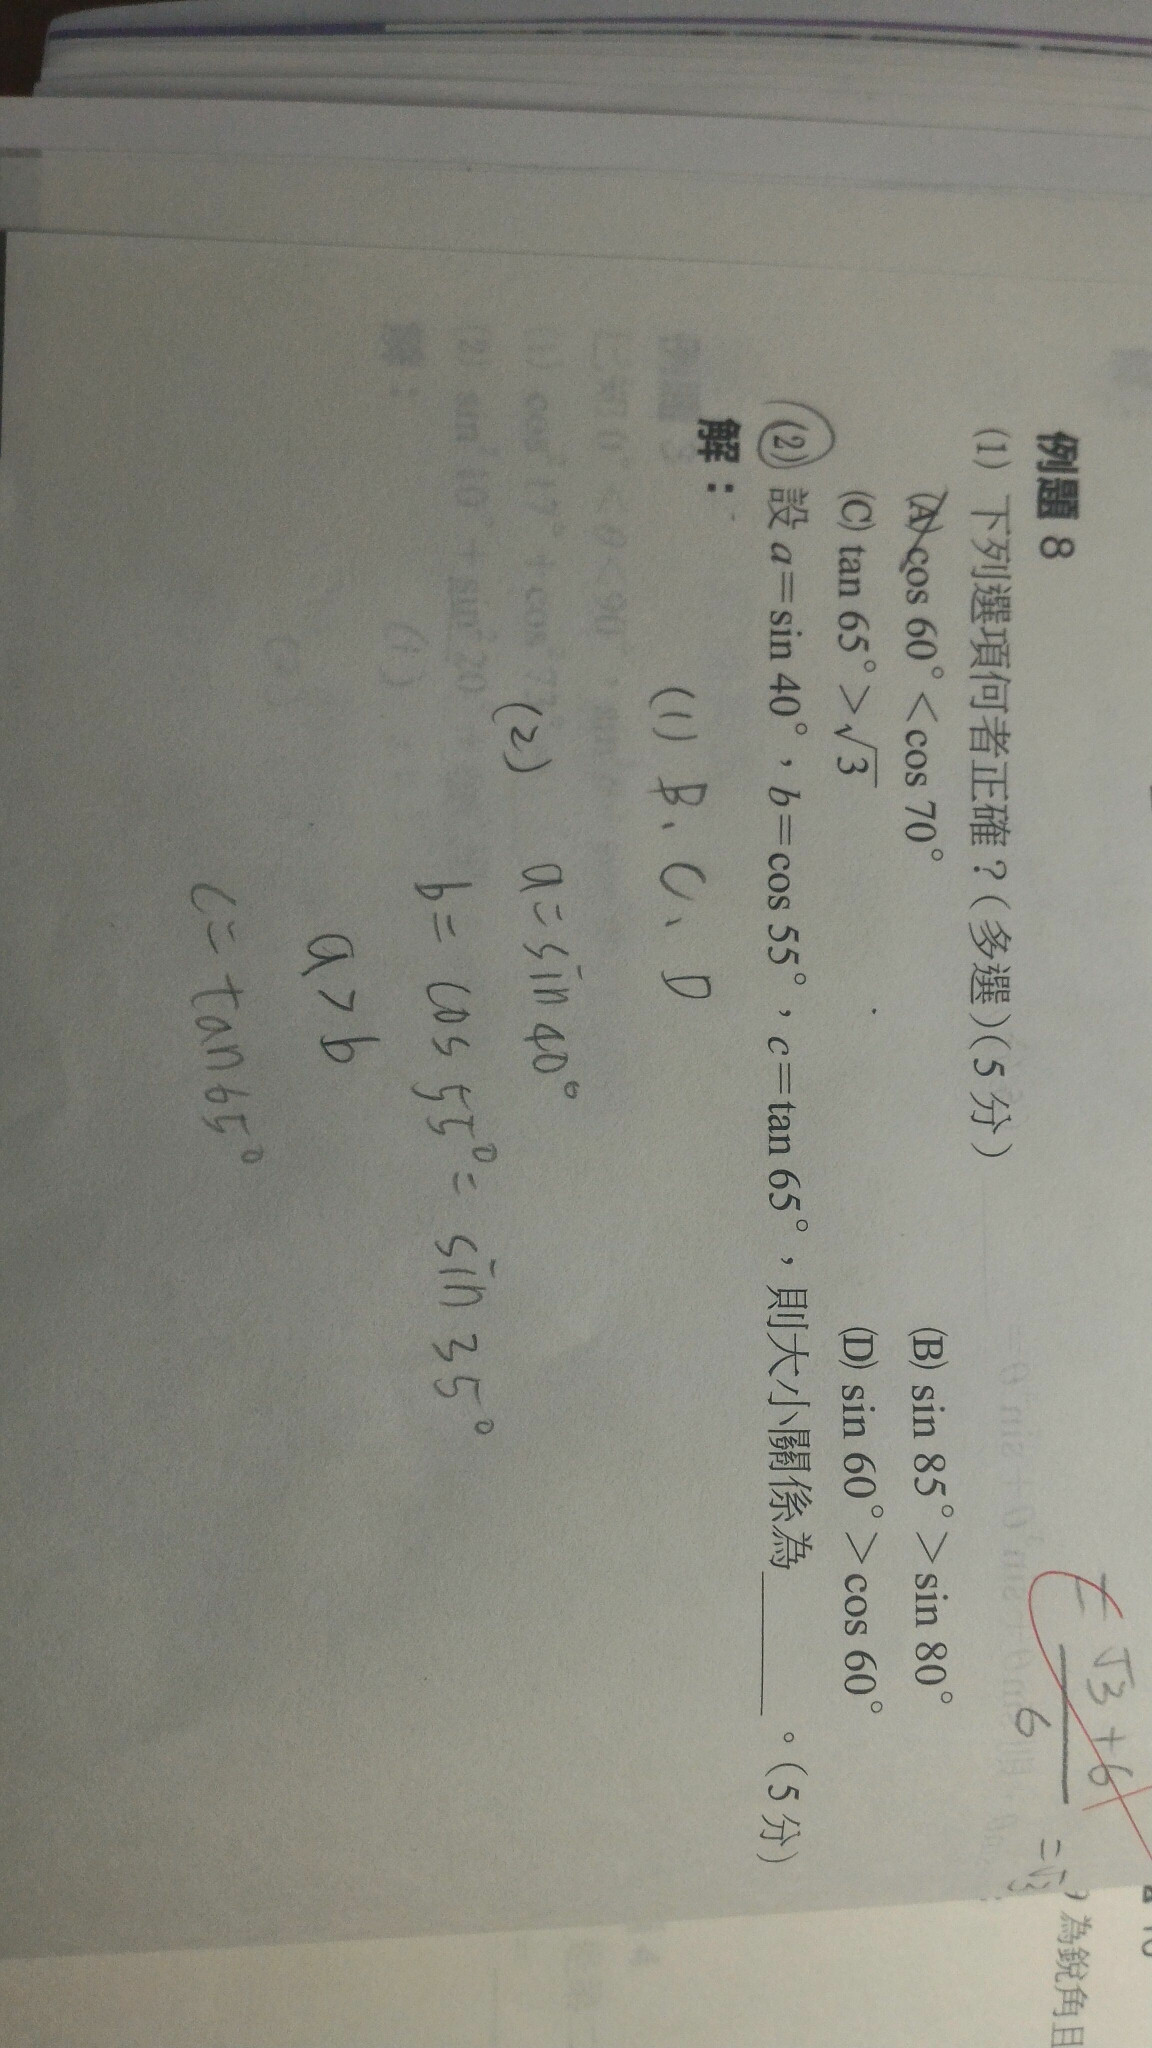 例題 8
(1) 下列選項何者正確？(多選)(5 分)
(A) cos 60°<cos 70° (B) sin 85°>sin 80°
(C) tan 65°>√3 (D) sin 60°>cos 60°
(2) 設 a=sin 40°，b=cos 55°，c=tan 65°，則大小關係為______。(5 分)
解：
(1) B、C、D
(2) a=sin40°
b=cos55°=sin35°
a>b
c=tan65°
=√3+6/6
=√3
為銳角且